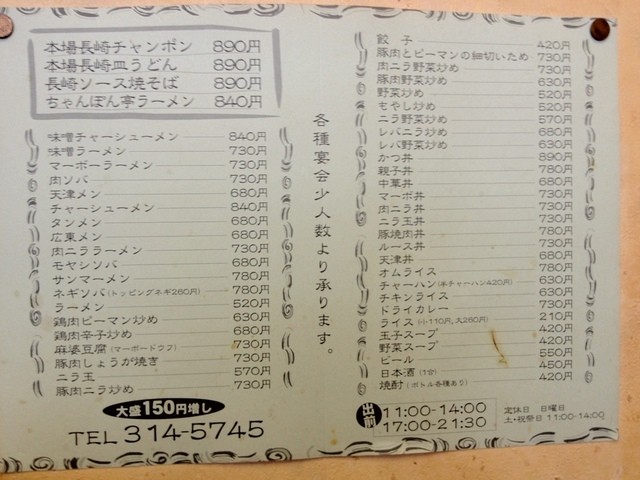 本場長崎チャンポン 890円
本場長崎皿うどん 890円
長崎ソース焼そば 890円
ちゃんぽん亭ラーメン 840円
味噌チャーシューメン 840円
味噌ラーメン 730円
マーボーラーメン 730円
肉ソバ 730円
天津メン 680円
チャーシューメン 840円
タンメン 680円
広東メン 680円
肉ニララーメン 730円
モヤシソバ 680円
サンマーメン 780円
ネギソバ(トッピングネギ260円) 780円
ラーメン 520円
鶏肉ピーマン炒め 630円
鶏肉辛子炒め 680円
麻婆豆腐(マーボードウフ) 730円
豚肉しょうが焼き 730円
ニラ玉 570円
豚肉ニラ炒め 730円
大盛150円増し
TEL 314-5745
各種宴会少人数より承ります。
餃子 420円
豚肉とピーマンの細切いため 730円
肉ニラ野菜炒め 730円
豚肉野菜炒め 630円
野菜炒め 520円
もやし炒め 520円
ニラ野菜炒め 570円
レバニラ炒め 680円
レバ野菜炒め 630円
かつ丼 890円
親子丼 780円
中華丼 680円
マーボ丼 730円
肉ニラ丼 730円
ニラ玉丼 730円
豚焼肉丼 780円
ルース丼 730円
天津丼 680円
オムライス 780円
チャーハン(半チャーハン420円) 630円
チキンライス 630円
ドライカレー 730円
ライス(小110円,大260円) 210円
玉子スープ 420円
野菜スープ 420円
ビール 550円
日本酒(1合) 450円
焼酎(ボトル各種あり) 420円
出前 11:00-14:00
17:00-21:30
定休日 日曜日
土・祝祭日 11:00-14:00